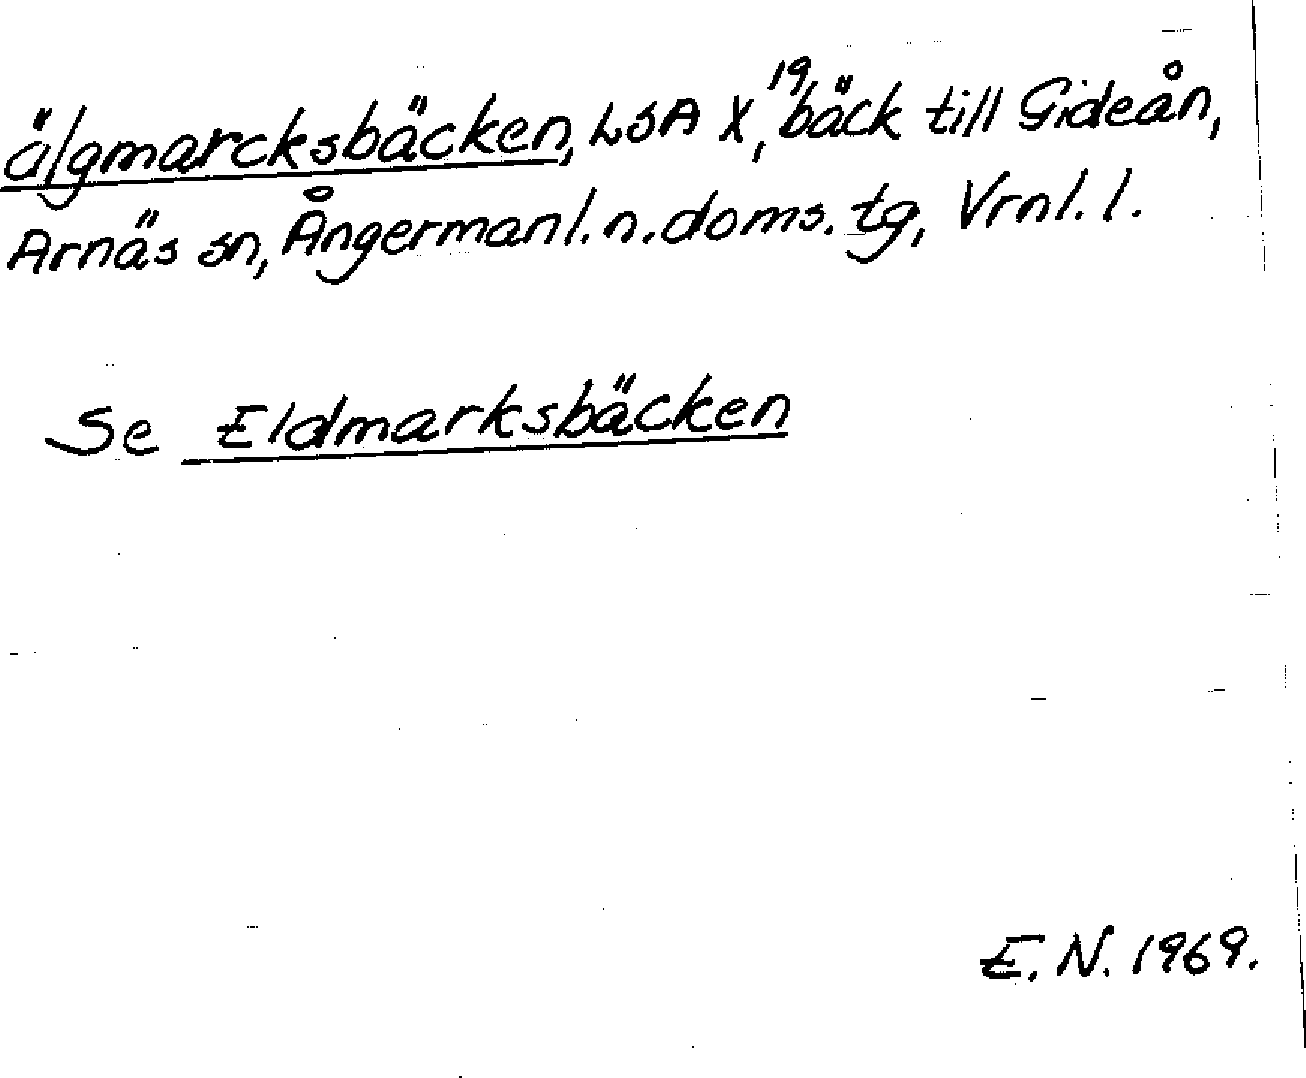 älgmarcksbäcken, LSA X, 19 bäck till Gideån,
Arnäs sn, Ångermanl. n. doms. tg, Vrnl. l.
Se Eldmarksbäcken
E. N. 1969.